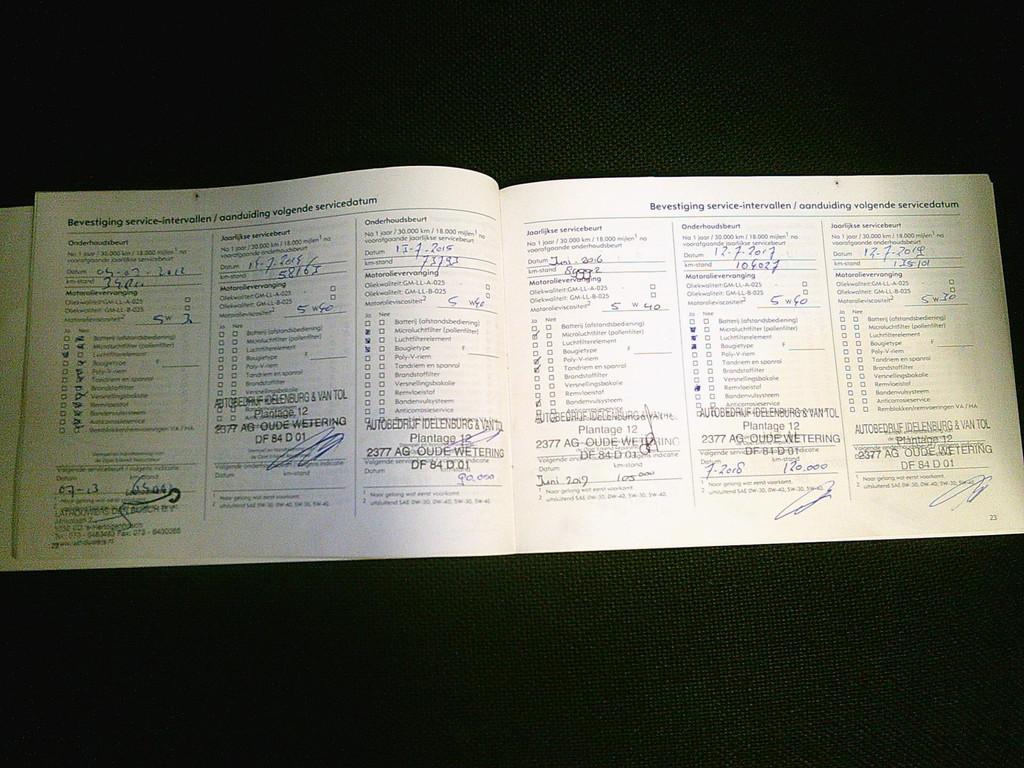 Bevestiging service-intervallen / aanduiding volgende servicedatum
Onderhoudsbeurt
No 1 jaar / 30.000 km / 18.000 mijlen¹ na
voorafgaande jaarlijkse servicebeurt
Datum
km-stand
Motorolievervanging
Oliekwaliteit: GM-LL-A-025
Oliekwaliteit: GM-LL-B-025
Motorolieviscositeit² 5 W
Ja Nee
Batterij (afstandsbediening)
Microluchtfilter (pollenfilter)
Luchtfilterelement
Bougietype F
Poly-V-riem
Tandriem en spanrol
Brandstoffilter
Versnellingsbakolie
Remvloeistof
Bandenvulsysteem
Anticorrosieservice
Remblokken/remvoeringen VA / HA
Datum km-stand
07-13
¹ Naar gelang wat eerst voorkomt.
Jaarlijkse servicebeurt
No 1 jaar / 30.000 km / 18.000 mijlen¹ na
voorafgaande onderhoudsbeurt
Datum
km-stand
Motorolievervanging
Oliekwaliteit: GM-LL-A-025
Oliekwaliteit: GM-LL-B-025
Motorolieviscositeit² 5 W40
Ja Nee
Batterij (afstandsbediening)
Microluchtfilter (pollenfilter)
Luchtfilterelement
Bougietype F
Poly-V-riem
Tandriem en spanrol
Brandstoffilter
Versnellingsbakolie
Remvloeistof
AUTOBEDRIJF IDELENBURG & VAN TOL
Plantage 12
2377 AG OUDE WETERING
DF 84 D 01
Datum km-stand
¹ Naar gelang wat eerst voorkomt.
² uitsluitend SAE 0W-30, 0W-40, 5W-30, 5W-40.
Onderhoudsbeurt
No 1 jaar / 30.000 km / 18.000 mijlen¹ na
voorafgaande jaarlijkse servicebeurt
Datum
km-stand
Motorolievervanging
Oliekwaliteit: GM-LL-A-025
Oliekwaliteit: GM-LL-B-025
Motorolieviscositeit² 5 W40
Ja Nee
Batterij (afstandsbediening)
Microluchtfilter (pollenfilter)
Luchtfilterelement
Bougietype F
Poly-V-riem
Tandriem en spanrol
Brandstoffilter
Versnellingsbakolie
Remvloeistof
Bandenvulsysteem
Anticorrosieservice
AUTOBEDRIJF IDELENBURG & VAN TOL
Plantage 12
2377 AG OUDE WETERING
DF 84 D 01
Datum
90.000
¹ Naar gelang wat eerst voorkomt.
² uitsluitend SAE 0W-30, 0W-40, 5W-30, 5W-40.
Bevestiging service-intervallen / aanduiding volgende servicedatum
Jaarlijkse servicebeurt
No 1 jaar / 30.000 km / 18.000 mijlen¹ na
voorafgaande onderhoudsbeurt
Datum Juni 2016
km-stand
Motorolievervanging
Oliekwaliteit: GM-LL-A-025
Oliekwaliteit: GM-LL-B-025
Motorolieviscositeit² 5 W 40
Ja Nee
Batterij (afstandsbediening)
Microluchtfilter (pollenfilter)
Luchtfilterelement
Bougietype F
Poly-V-riem
Tandriem en spanrol
Brandstoffilter
Versnellingsbakolie
Remvloeistof
Bandenvulsysteem
AUTOBEDRIJF IDELENBURG & VAN TOL
Plantage 12
2377 AG OUDE WETERING
DF 84 D 01
Datum km-stand
Juni 2017 105.000
¹ Naar gelang wat eerst voorkomt.
² uitsluitend SAE 0W-30, 0W-40, 5W-30, 5W-40.
Onderhoudsbeurt
No 1 jaar / 30.000 km / 18.000 mijlen¹ na
voorafgaande jaarlijkse servicebeurt
Datum 12-7-2017
km-stand 104027
Motorolievervanging
Oliekwaliteit: GM-LL-A-025
Oliekwaliteit: GM-LL-B-025
Motorolieviscositeit² 5 W40
Ja Nee
Batterij (afstandsbediening)
Microluchtfilter (pollenfilter)
Luchtfilterelement
Bougietype F
Poly-V-riem
Tandriem en spanrol
Brandstoffilter
Versnellingsbakolie
Remvloeistof
Bandenvulsysteem
Anticorrosieservice
AUTOBEDRIJF IDELENBURG & VAN TOL
Plantage 12
2377 AG OUDE WETERING
DF 84 D 01
Datum
120.000
¹ Naar gelang wat eerst voorkomt.
² uitsluitend SAE 0W-30, 0W-40, 5W-30, 5W-40.
Jaarlijkse servicebeurt
No 1 jaar / 30.000 km / 18.000 mijlen¹ na
voorafgaande onderhoudsbeurt
Datum
km-stand
Motorolievervanging
Oliekwaliteit: GM-LL-A-025
Oliekwaliteit: GM-LL-B-025
Motorolieviscositeit² 5 W30
Ja Nee
Batterij (afstandsbediening)
Microluchtfilter (pollenfilter)
Luchtfilterelement
Bougietype F
Poly-V-riem
Tandriem en spanrol
Brandstoffilter
Versnellingsbakolie
Remvloeistof
Bandenvulsysteem
Anticorrosieservice
Remblokken/remvoeringen VA / HA
AUTOBEDRIJF IDELENBURG & VAN TOL
Plantage 12
2377 AG OUDE WETERING
DF 84 D 01
Datum
¹ Naar gelang wat eerst voorkomt.
² uitsluitend SAE 0W-30, 0W-40, 5W-30, 5W-40.
23